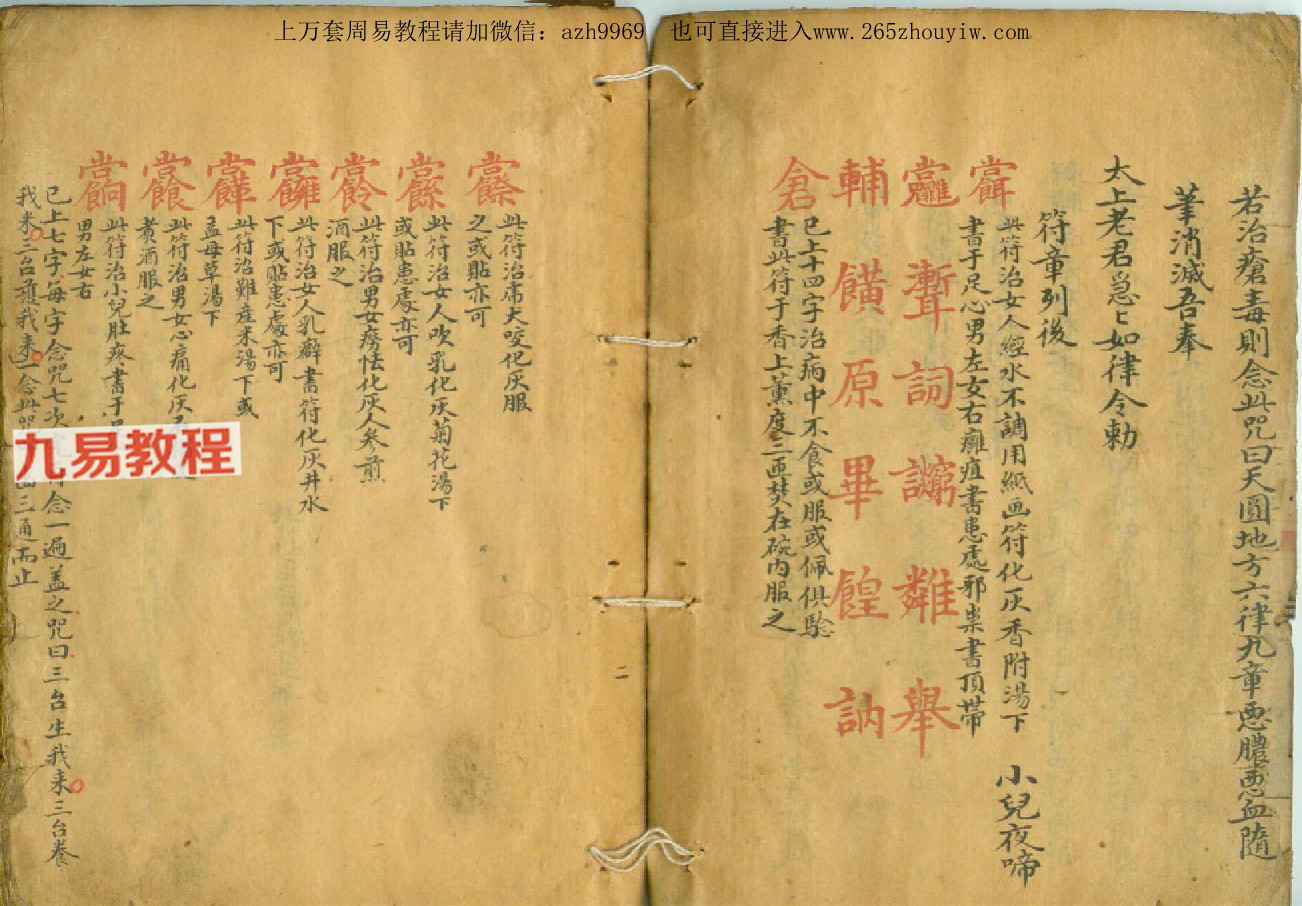 上万套周易教程请加微信：azh9969 也可直接进入www.265zhouyiw.com
若治瘡毒則念此咒曰天圓地方六律九章惡膿惡血隨
筆消滅吾奉
太上老君急〻如律令勅
符章列後
此符治女人經水不調用紙画符化灰香附湯下 小兒夜啼
書于足心男左女右癰疽書患處邪祟書頂帶
輔 原畢 訥
倉
已上十四字治病中不食或服或佩俱騐
書此符于香上薰度三匝焚在碗内服之
此符治席犬咬化灰服
之或貼亦可
此符治女人吹乳化灰菊花湯下
或貼患處亦可
此符治男女癆怯化灰人參煎
酒服之
此符治女人乳癖書符化灰井水
下或貼患處亦可
此符治難産米湯下或
益母草湯下
此符治男女心痛化灰
黄酒服之
此符治小兒肚疼書于
男左女右
已上七字每字念咒七次 念一遍蓋之咒曰三台生我来三台養
我来三台護我来一念此咒 三通而止
九易教程
二